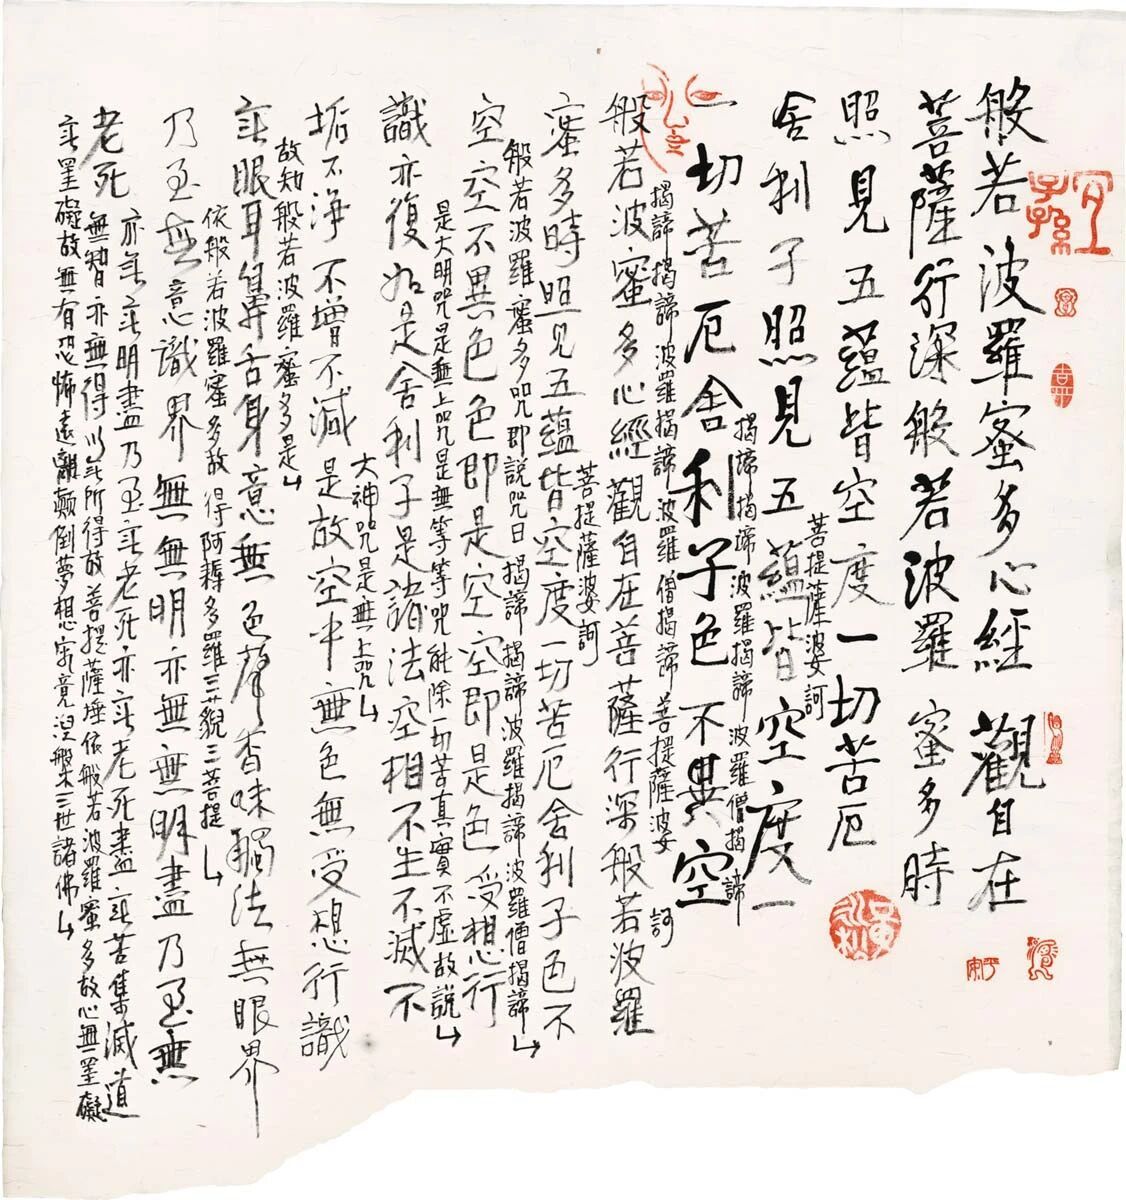 般若波羅蜜多心經 觀自在
菩薩行深般若波羅蜜多時
照見五蘊皆空度一切苦厄
菩提薩婆訶
舍利子照見五蘊皆空度一
揭諦揭諦波羅揭諦波羅僧揭諦
一切苦厄舍利子色不異空
揭諦揭諦波羅揭諦波羅僧揭諦菩提薩婆訶
般若波蜜多心經觀自在菩薩行深般若波羅
菩提薩婆訶
蜜多時照見五蘊皆空度一切苦厄舍利子色不
般若波羅蜜多咒即說咒曰揭諦揭諦波羅揭諦波羅僧揭諦
空空不異色色即是空空即是色受想行
是大明咒是無上咒是無等等咒能除一切苦真實不虛故說
識亦復如是舍利子是諸法空相不生不滅不
大神咒是無上咒
垢不淨不增不減是故空中無色無受想行識
故知般若波羅蜜多是
無眼耳鼻舌身意無色聲香味觸法無眼界
依般若波羅蜜多故得阿耨多羅三藐三菩提
乃至無意識界無無明亦無無明盡乃至無
老死亦無無明盡乃至無老死亦無老死盡無苦集滅道
無智亦無得以無所得故菩提薩埵依般若波羅蜜多故心無罣礙
無罣礙故無有恐怖遠離顛倒夢想究竟涅槃三世諸佛